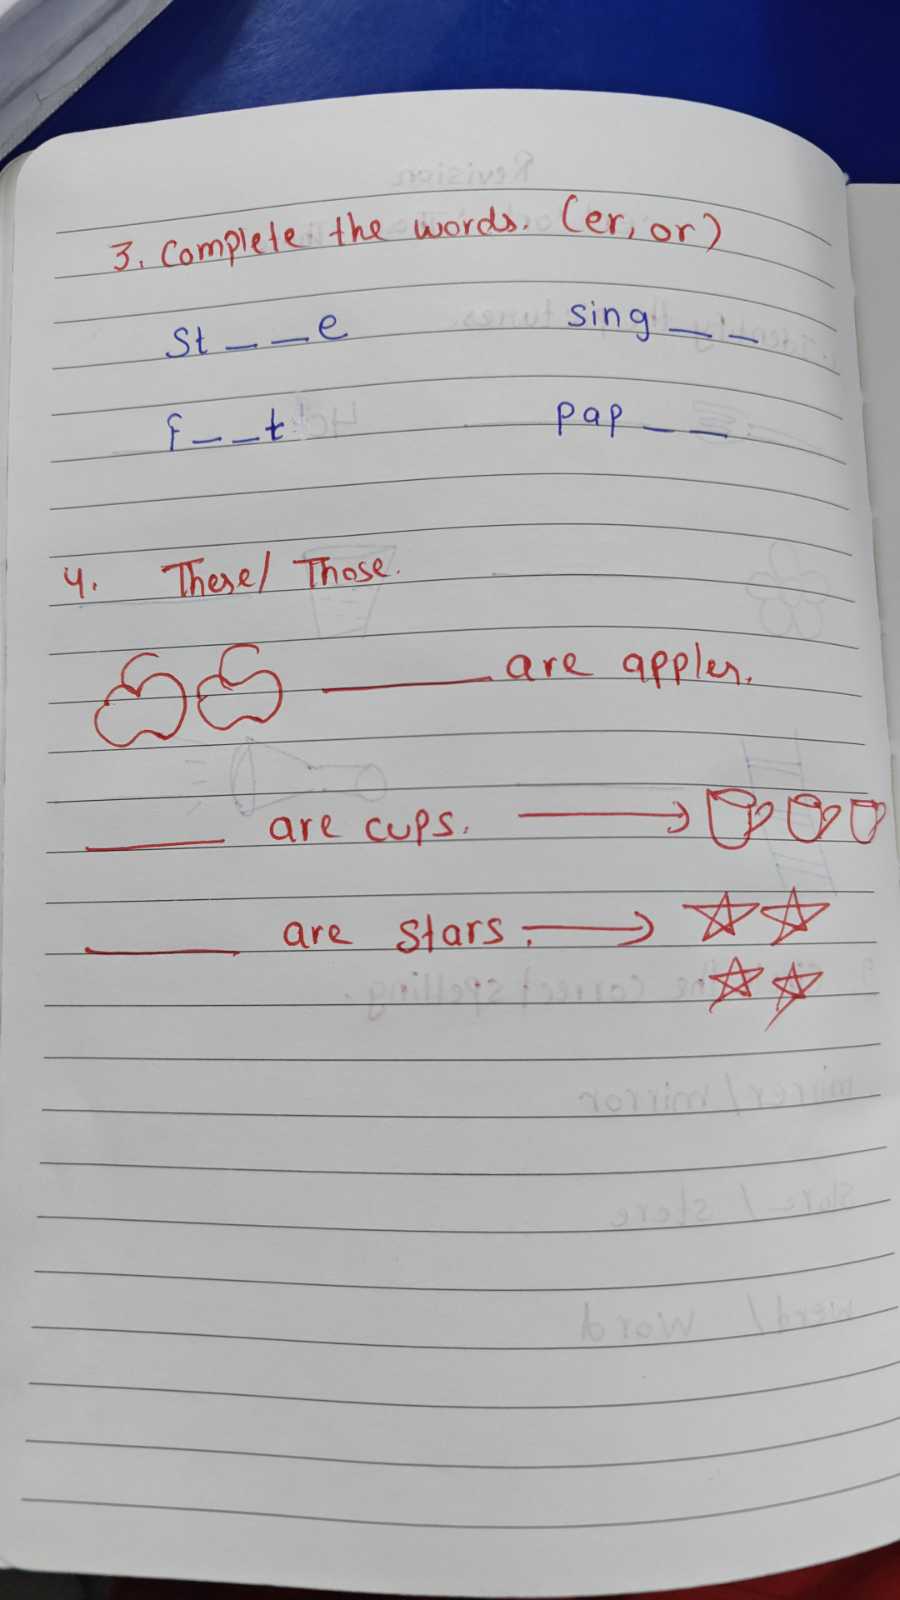 3. Complete the words. (er, or)
St _ _ e    sing _ _
f _ _ t    pap _ _
4. These/ Those.
______ are apples.
______ are cups.
______ are stars.